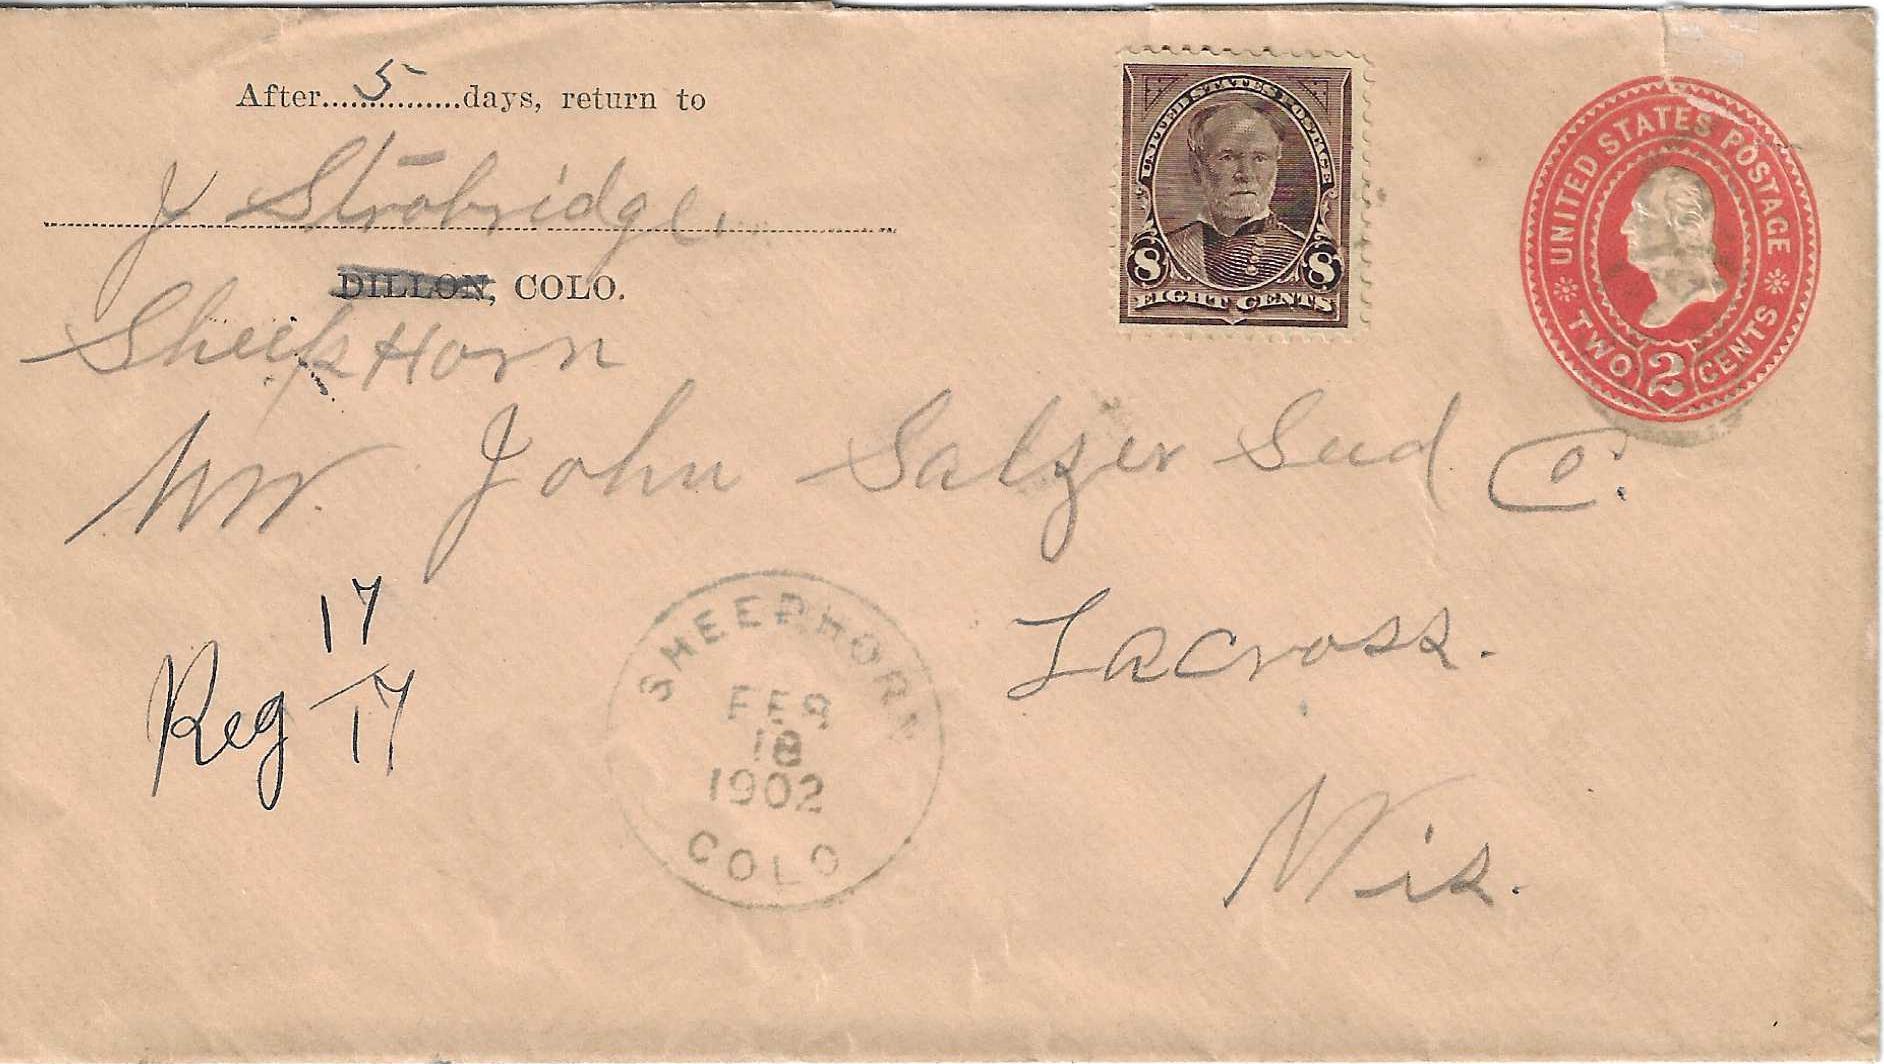 After 5 days, return to
J Strobridge.
DILLON, COLO.
Sheep Horn
UNITED STATES POSTAGE
8 8
EIGHT CENTS
UNITED STATES POSTAGE
TWO 2 CENTS
Mr. John Salzer Seed Co.
Lacross.
Wis.
17
Reg 17
SHEEPHORN
FEB
18
1902
COLO